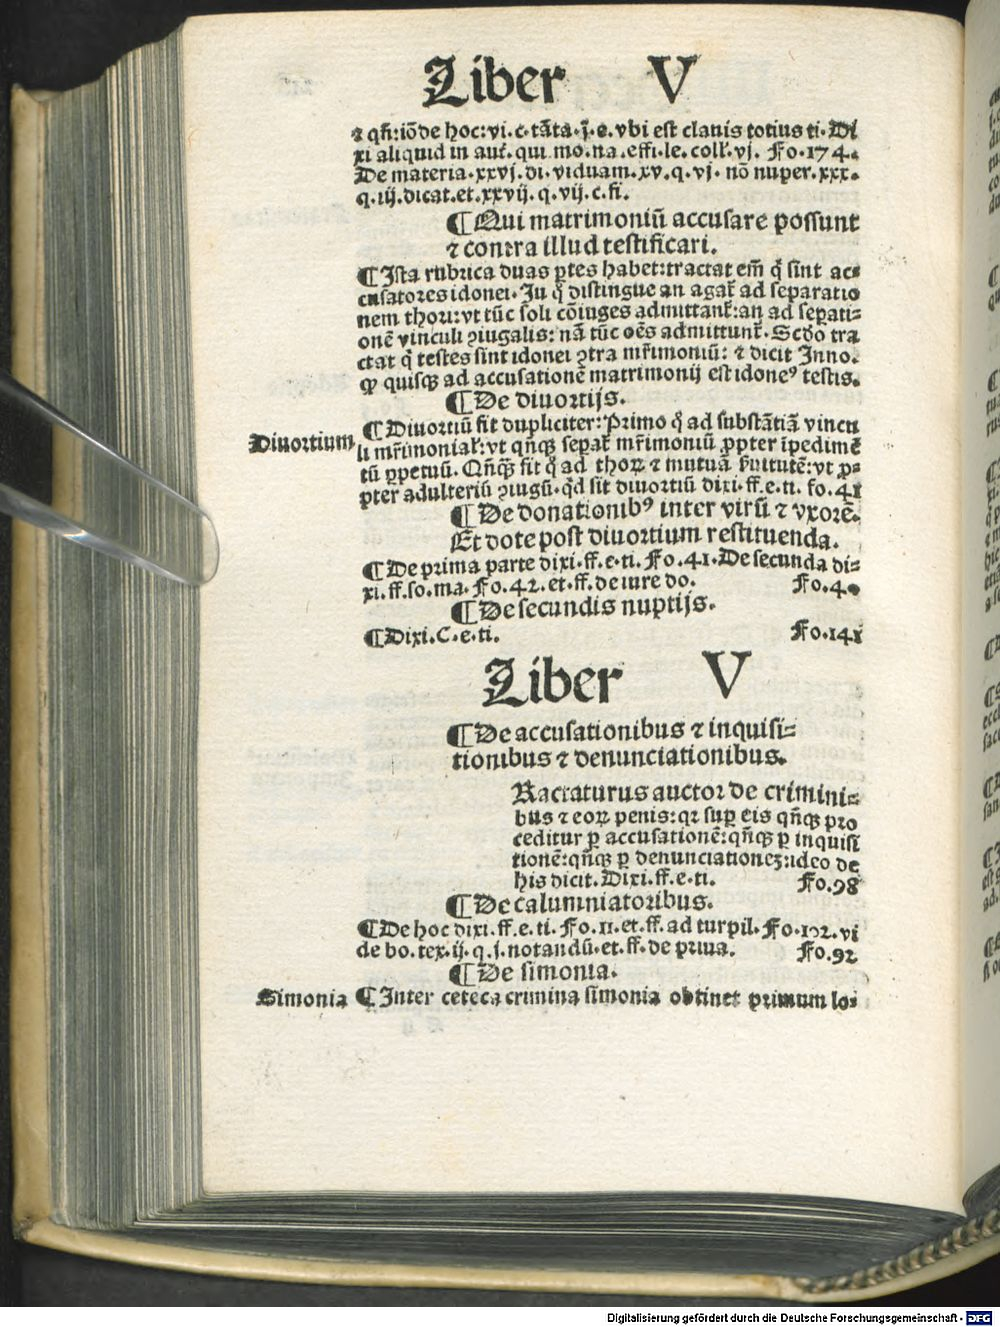 Liber V
⁊ qñ: iõde hoc: vi. c. tãta. j̃. e. vbi est clauis totius ti. Di
xi aliquid in aut. qui mo. na. effi. le. coll. vj. Fo. 174.
De materia. xxvj. di. viduam. xv. q. vj. nõ nuper. xxx.
q. iij. dicat. et. xxvij. q. vij. c. fi.
¶ Qui matrimoniũ accusare possunt
⁊ contra illud testificari.
¶ Ista rubrica duas ꝑtes habet: tractat em̃ q̃ sint ac⸗
cusatores idonei. In q̃ distingue an agat̃ ad separatio
nem thori: vt tũc soli cõiuges admittant̃: an ad sepati⸗
onẽ vinculi ꝯiugalis: nã tũc oẽs admittunt̃. Scďo tra
ctat q̃ testes sint idonei ꝯtra mr̃imoniũ: ⁊ dicit Inno.
ꝙ quisqꝫ ad accusationẽ matrimonij est idoneꝰ testis.
¶ De diuortijs.
Diuortium
¶ Diuortiũ fit dupliciter: Primo q̃ ad substãtiã vincu
li mr̃imonial̃: vt qñqꝫ sepat̃ mr̃imoniũ ꝓpter ĩpedimẽ
tũ ꝑpetuũ. Qñqꝫ fit q̃ ad thoꝝ ⁊ mutuã ẜuitutẽ: vt ꝓ⸗
pter adulteriũ ꝯiugũ. qď sit diuortiũ dixi. ff. e. ti. fo. 41
¶ De donationibꝰ inter virũ ⁊ vxorẽ.
Et dote post diuortium restituenda.
¶ De prima parte dixi. ff. e. ti. Fo. 41. De secunda di⸗
xi. ff. so. ma. Fo. 42. et. ff. de iure do. Fo. 4
¶ De secundis nuptijs.
¶ Dixi. C. e. ti. Fo. 141
Liber V
¶ De accusationibus ⁊ inquisi⸗
tionibus ⁊ denunciationibus.
Ractaturus auctor de crimini⸗
bus ⁊ eoꝝ penis: qꝛ suꝑ eis qñqꝫ pro
ceditur ꝑ accusationẽ: qñqꝫ ꝑ inquisi
tionẽ: qñqꝫ ꝑ denunciationeꝫ: ideo de
his dicit. Dixi. ff. e. ti. Fo. 98
¶ De calumniatoribus.
¶ De hoc dixi. ff. e. ti. Fo. 11. et. ff. ad turpil. Fo. 102. vi
de bo. tex. ij. q. j. notandũ. et. ff. de priua. Fo. 92
¶ De simonia.
Simonia ¶ Inter ceteca crimina simonia obtinet primum lo⸗
Digitalisierung gefördert durch die Deutsche Forschungsgemeinschaft - DFG